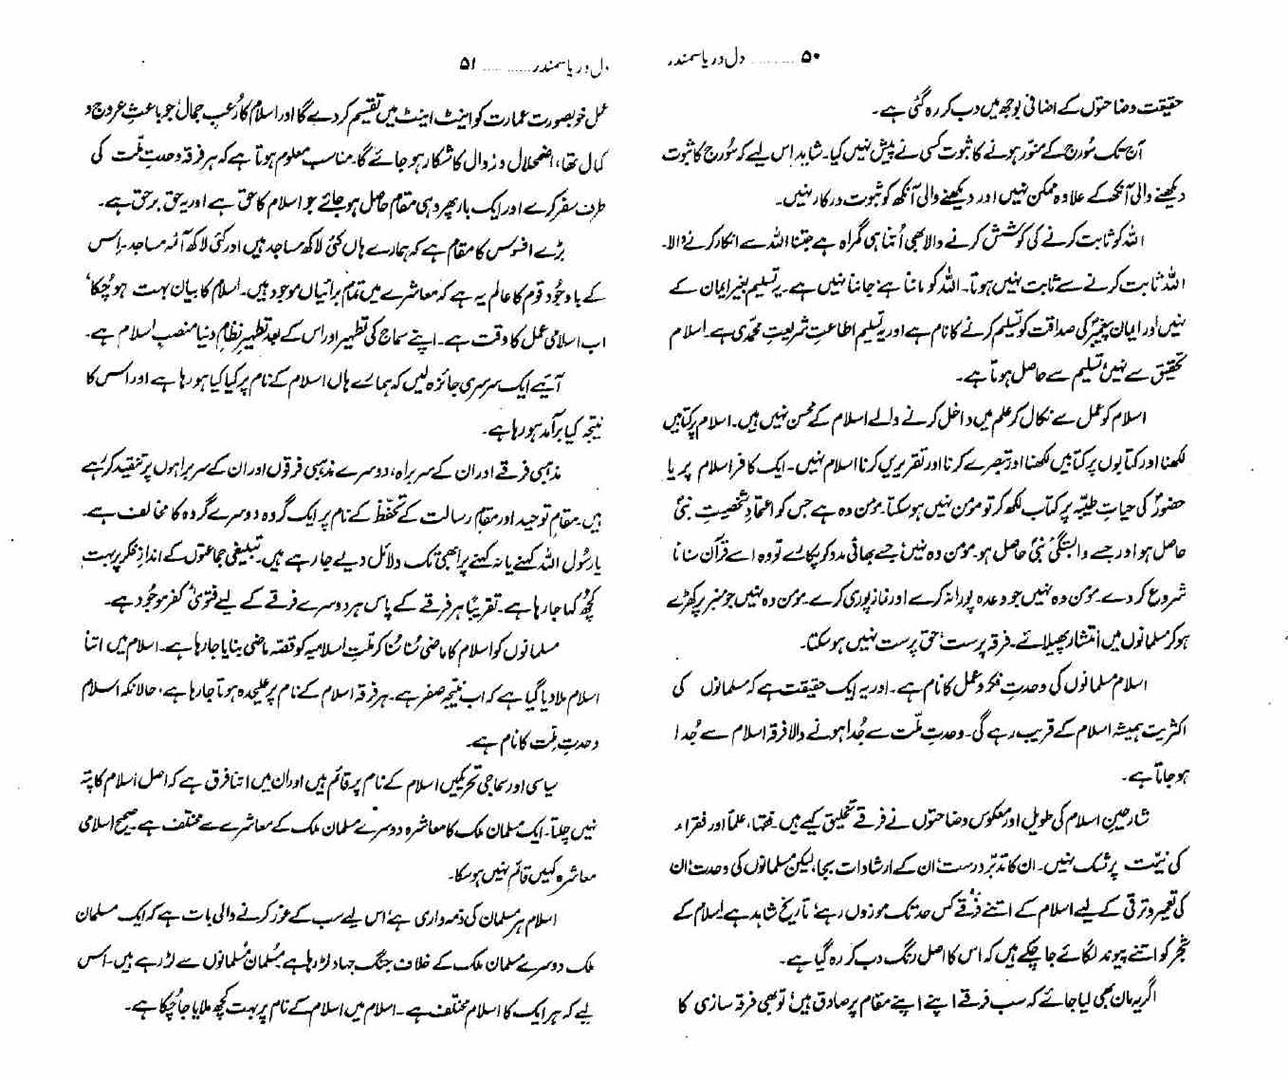 ۵۰ ........ دل دریا سمندر
حقیقت وضاحتوں کے اضافی بوجھ میں دب کر رہ گئی ہے۔
آج تک سُورج کے منوّر ہونے کا ثبوت کسی نے پیش نہیں کیا۔ شاید اِس لیے کہ سُورج کا ثبوت
دیکھنے والی آنکھ کے علاوہ ممکن نہیں اور دیکھنے والی آنکھ کو ثبوت درکار نہیں۔
اللہ کو ثابت کرنے کی کوشش کرنے والا بھی اُتنا ہی گمراہ ہے جتنا اللہ سے انکار کرنے والا۔
اللہ ثابت کرنے سے ثابت نہیں ہوتا۔ اللہ کو ماننا ہے جاننا نہیں ہے۔ یہ تسلیم بغیر ایمان کے
نہیں اور ایمان پیغمبرؐ کی صداقت کو تسلیم کرنے کا نام ہے اور یہ تسلیم اطاعتِ شریعتِ محمدی ہے۔ اسلام
تحقیق سے نہیں تسلیم سے حاصل ہوتا ہے۔
اسلام کو عمل سے نکال کر علم میں داخل کرنے والے اسلام کے محسن نہیں ہیں۔ اسلام پر کتابیں
لکھنا اور کتابوں پر کتابیں لکھنا اور تبصرے کرنا اور تقریریں کرنا اسلام نہیں۔ ایک کافر اسلام پر یا
حضورؐ کی حیاتِ طیّبہ پر کتاب لکھ کر تو مومن نہیں ہو سکتا۔ مومن وہ ہے جس کو اعتمادِ شخصیتِ نبیؐ
حاصل ہو اور جسے وابستگیٔ نبیؐ حاصل ہو۔ مومن وہ نہیں جسے بھائی مدد کو پکارے تو وہ اسے قرآن سنانا
شروع کر دے۔ مومن وہ نہیں جو وعدہ پورا نہ کرے اور نماز پوری کرے۔ مومن وہ نہیں جو منبر پر کھڑے
ہو کر مسلمانوں میں انتشار پھیلائے۔ فرقہ پرست، حق پرست نہیں ہو سکتا۔
اسلام مسلمانوں کی وحدتِ فکر و عمل کا نام ہے۔ اور یہ ایک حقیقت ہے کہ مسلمانوں کی
اکثریت ہمیشہ اسلام کے قریب رہے گی۔ وحدتِ ملّت سے جُدا ہونے والا فرقہ اسلام سے جُدا
ہو جاتا ہے۔
شارحینِ اسلام کی طویل اور معکوس وضاحتوں نے فرقے تخلیق کیے ہیں۔ فقہا، علما اور فقراء
کی نیّت پر شک نہیں۔ ان کا تدبّر درست، ان کے ارشادات بجا، لیکن مسلمانوں کی وحدت، ان
کی تعمیر و ترقی کے لیے اسلام کے اتنے فرقے کس حد تک موزوں رہے، تاریخ شاہد ہے۔ اسلام کے
شجر کو اتنے پیوند لگائے جا چکے ہیں کہ اس کا اصل رنگ دب کر رہ گیا ہے۔
اگر یہ مان بھی لیا جائے کہ سب فرقے اپنے اپنے مقام پر صادق ہیں، تو بھی فرقہ سازی کا
دل دریا سمندر ........ ۵۱
عمل خوبصورت عمارت کو اینٹ اینٹ میں تقسیم کر دے گا اور اسلام کا رُعب جمال، جو باعثِ عروج و
کمال تھا، اضمحلال و زوال کا شکار ہو جائے گا۔ مناسب معلوم ہوتا ہے کہ ہر فرقہ وحدتِ ملّت کی
طرف سفر کرے اور ایک بار پھر وہی مقام حاصل ہو جائے جو اسلام کا حق ہے اور یہ حق برحق ہے۔
بڑے افسوس کا مقام ہے کہ ہمارے ہاں کئی لاکھ مساجد ہیں اور کئی لاکھ آئمہ مساجد۔ اِس
کے باوجُود قوم کا عالم یہ ہے کہ معاشرے میں تمام برائیاں موجود ہیں۔ اسلام کا بیان بہت ہو چُکا،
اب اسلامی عمل کا وقت ہے۔ اپنے سماج کی تطہیر اور اس کے بعد تطہیرِ نظامِ دنیا منصبِ اسلام ہے۔
آیئے ایک سرسری جائزہ لیں کہ ہمارے ہاں اسلام کے نام پر کیا کیا ہو رہا ہے اور اس کا
نتیجہ کیا برآمد ہو رہا ہے۔
مذہبی فرقے اور ان کے سربراہ، دوسرے مذہبی فرقوں اور ان کے سربراہوں پر تنقید کر رہے
ہیں۔ مقامِ توحید اور مقامِ رسالت کے تحفّظ کے نام پر ایک گروہ دوسرے گروہ کا مخالف ہے۔
یا رسُول اللہ کہنے یا نہ کہنے پر ابھی تک دلائل دیے جا رہے ہیں۔ تبلیغی جماعتوں کے اندازِ فکر پر بہت
کچھ کہا جا رہا ہے۔ تقریباً ہر فرقے کے پاس ہر دوسرے فرقے کے لیے فتویٰٔ کفر موجُود ہے۔
مسلمانوں کو اسلام کا ماضی سُنا سُنا کر ملّتِ اسلامیہ کو قصّہ ماضی بنایا جا رہا ہے۔ اسلام میں اتنا
اسلام ملا دیا گیا ہے کہ اب نتیجہ صفر ہے۔ ہر فرقہ اسلام کے نام پر علیحدہ ہوتا جا رہا ہے، حالانکہ اسلام
وحدتِ ملّت کا نام ہے۔
سیاسی اور سماجی تحریکیں اسلام کے نام پر قائم ہیں اور ان میں اتنا فرق ہے کہ اصل اسلام کا پتہ
نہیں چلتا۔ ایک مسلمان ملک کا معاشرہ دوسرے مسلمان ملک کے معاشرے سے مختلف ہے۔ صحیح اسلامی
معاشرہ کہیں قائم نہیں ہو سکا۔
اسلام ہر مسلمان کی ذمہ داری ہے، اس لیے سب کے غور کرنے والی بات ہے کہ ایک مسلمان
ملک دوسرے مسلمان ملک کے خلاف جنگ جہاد لڑ رہا ہے۔ مُسلمان مُسلمانوں سے لڑ رہے ہیں۔ اُس
لیے کہ ہر ایک کا اسلام مختلف ہے۔ اسلام میں اسلام کے نام پر بہت کچھ ملایا جا چُکا ہے۔